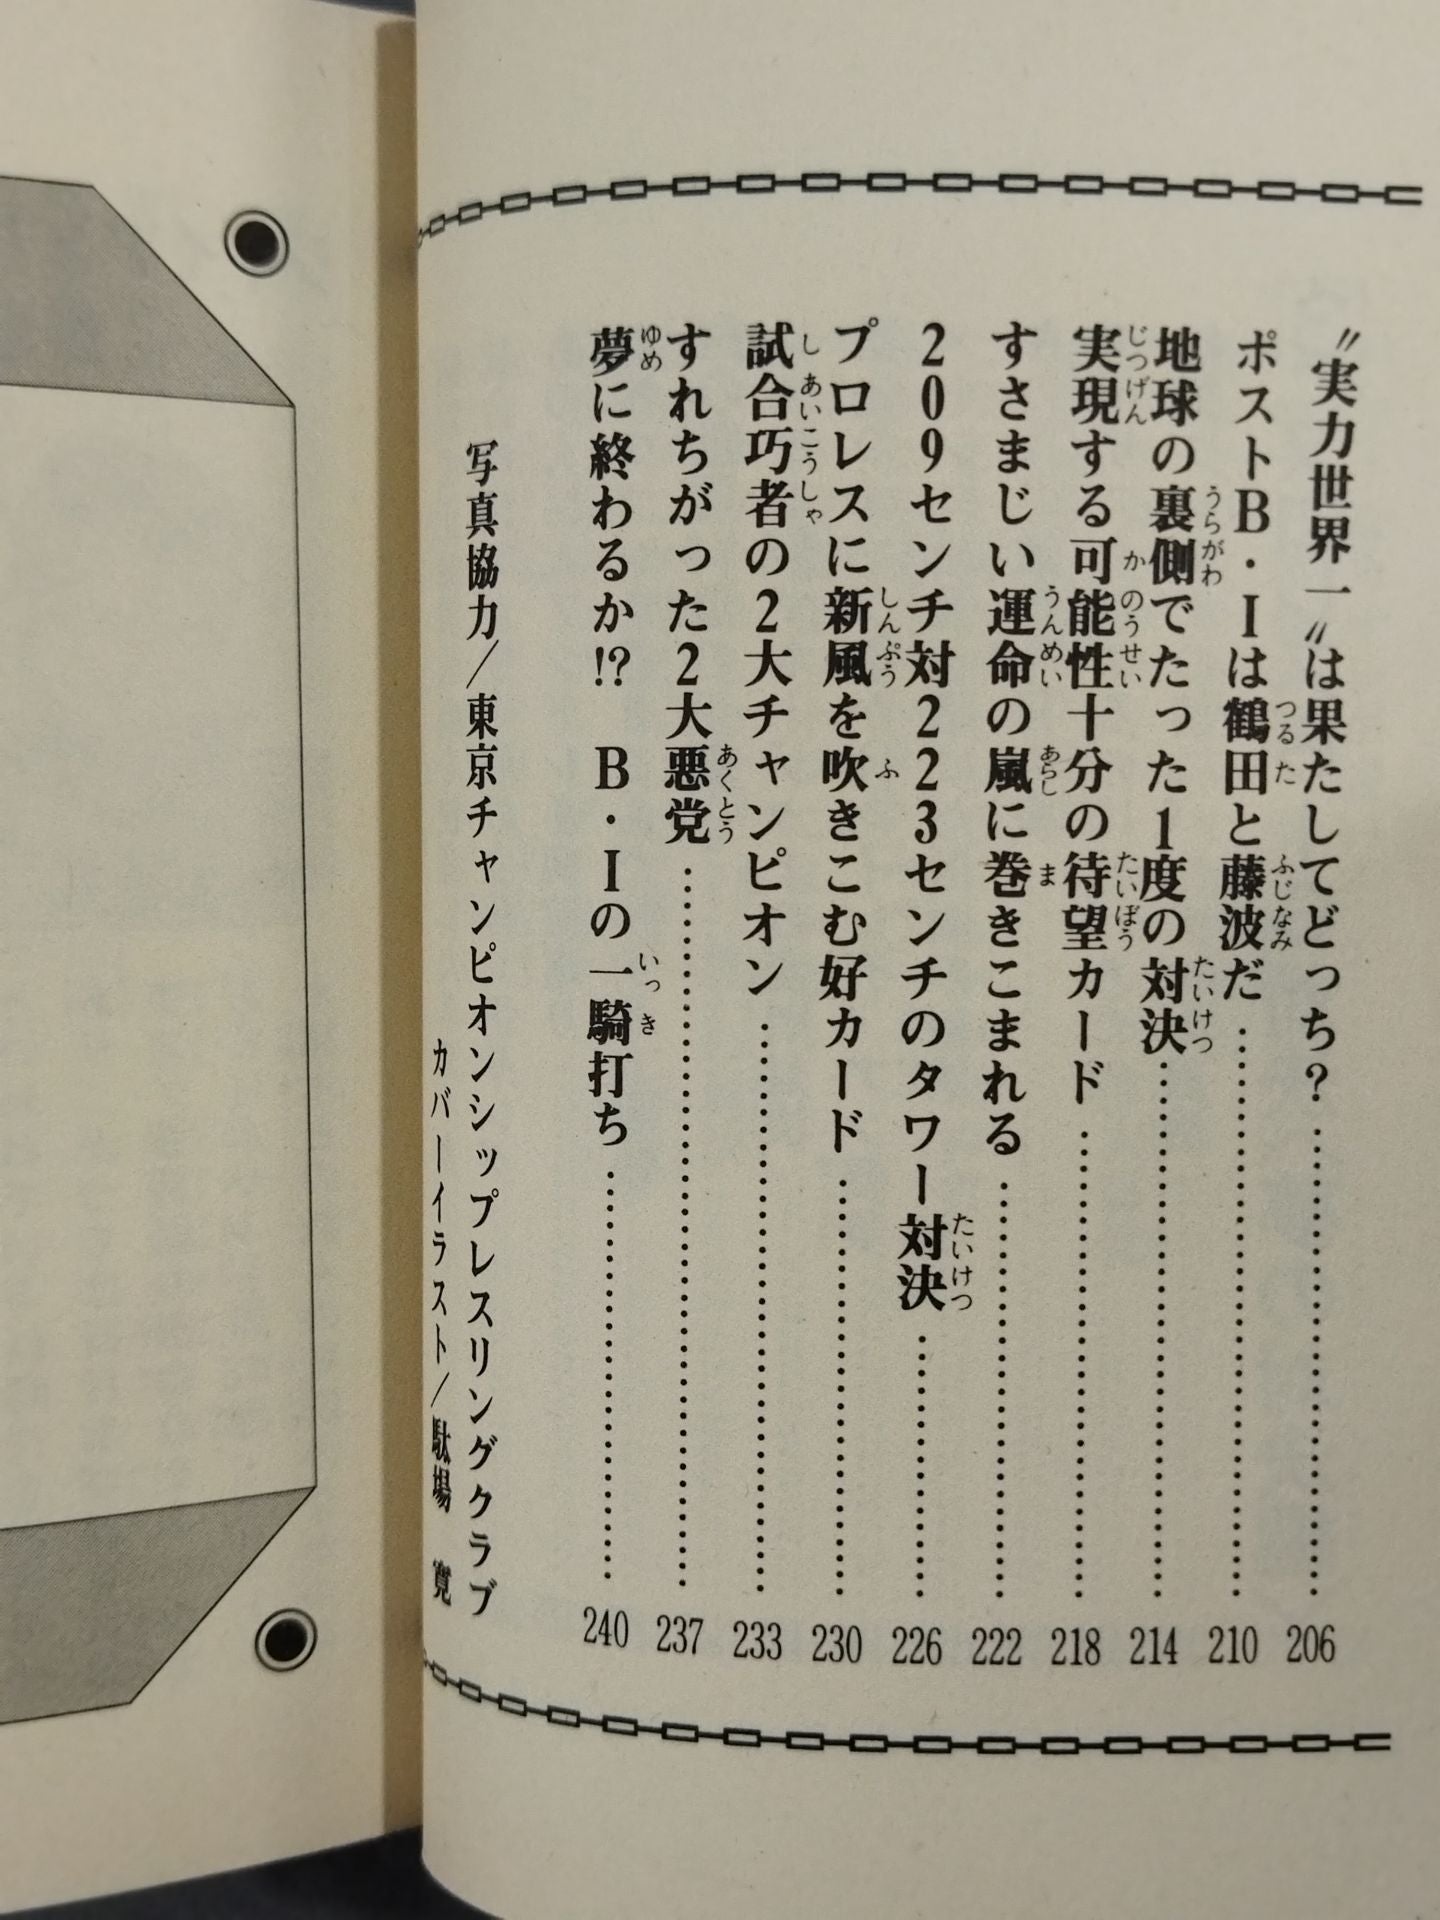 〝実力世界一〟は果たしてどっち？……………206
ポストB・Iは鶴田と藤波だ……………210
地球の裏側でたった1度の対決……………214
実現する可能性十分の待望カード……………218
すさまじい運命の嵐に巻きこまれる……………222
209センチ対223センチのタワー対決……………226
プロレスに新風を吹きこむ好カード……………230
試合巧者の2大チャンピオン……………233
すれちがった2大悪党……………237
夢に終わるか!?　B・Iの一騎打ち……………240
写真協力／東京チャンピオンシップレスリングクラブ
カバーイラスト／駄場　寛